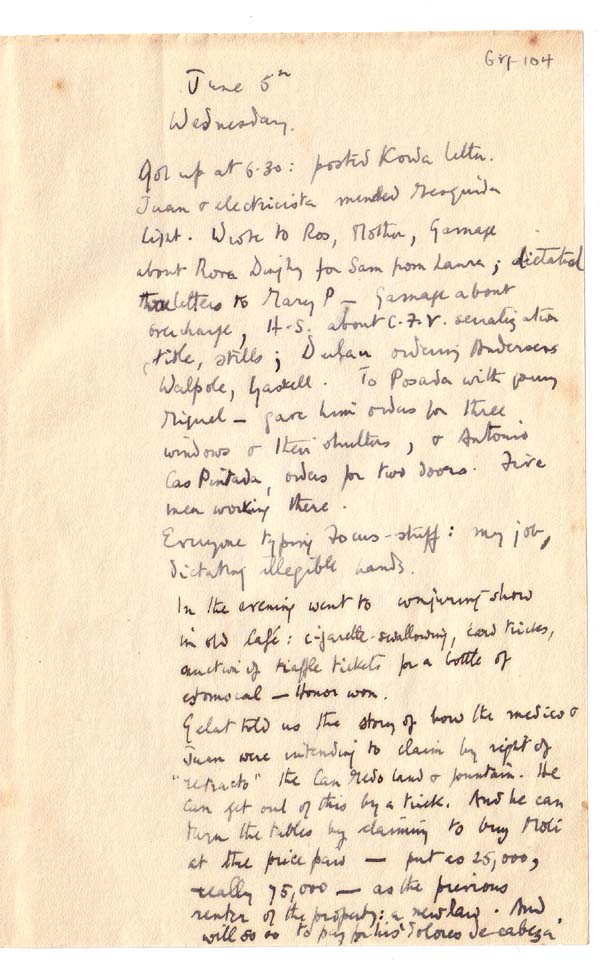 June 5th
Wednesday.
Got up at 6.30: posted Korda letter.
Juan & electricista mended Mesquida
light. Wrote to Ros, Mother, Gamage
about Rora for Sam from Laura; dictated
letters to Mary P — Gamage about
overcharge, H-S. about C.F.V. serialization
title, stills; Dulau ordering Andersens
Walpole, Gaskell. To Posada with young
Miguel — gave him orders for three
windows & their shutters, & Antonio
Cas Pintada, orders for two doors. Five
men working there.
Everyone typing Focus-stuff: my job,
dictating illegible hands.
In the evening went to conjuring-show
in old Café: cigarette-swallowing, card tricks,
auction of raffle tickets for a bottle of
estomocal — Honor won.
Gelat told us the story of how the medico &
Juan were intending to claim by right of
"retracto" the Can Medo land & fountain. He
can get out of this by a trick. And he can
turn the tables by claiming to buy Molí
at the price paid — put as 25,000,
really 75,000 — as the previous
renter of the property: a new law. And
will do so to pay for his dolores de cabeza.